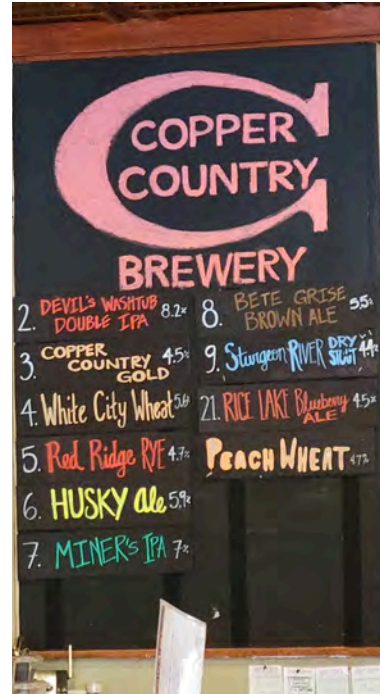 COPPER
COUNTRY
BREWERY
2. DEVIL'S WASHTUB 8.2%
DOUBLE IPA
3. COPPER 4.5%
COUNTRY
GOLD
4. White City Wheat
5. Red Ridge RYE 4.7%
6. HUSKY ale 5.9%
7. MINER'S IPA 7%
8. BETE GRISE 5.5%
BROWN ALE
9. Sturgeon RIVER DRY 4.4%
STOUT
21. RICE LAKE Blueberry 4.5%
ALE
PEACH WHEAT 4.7%